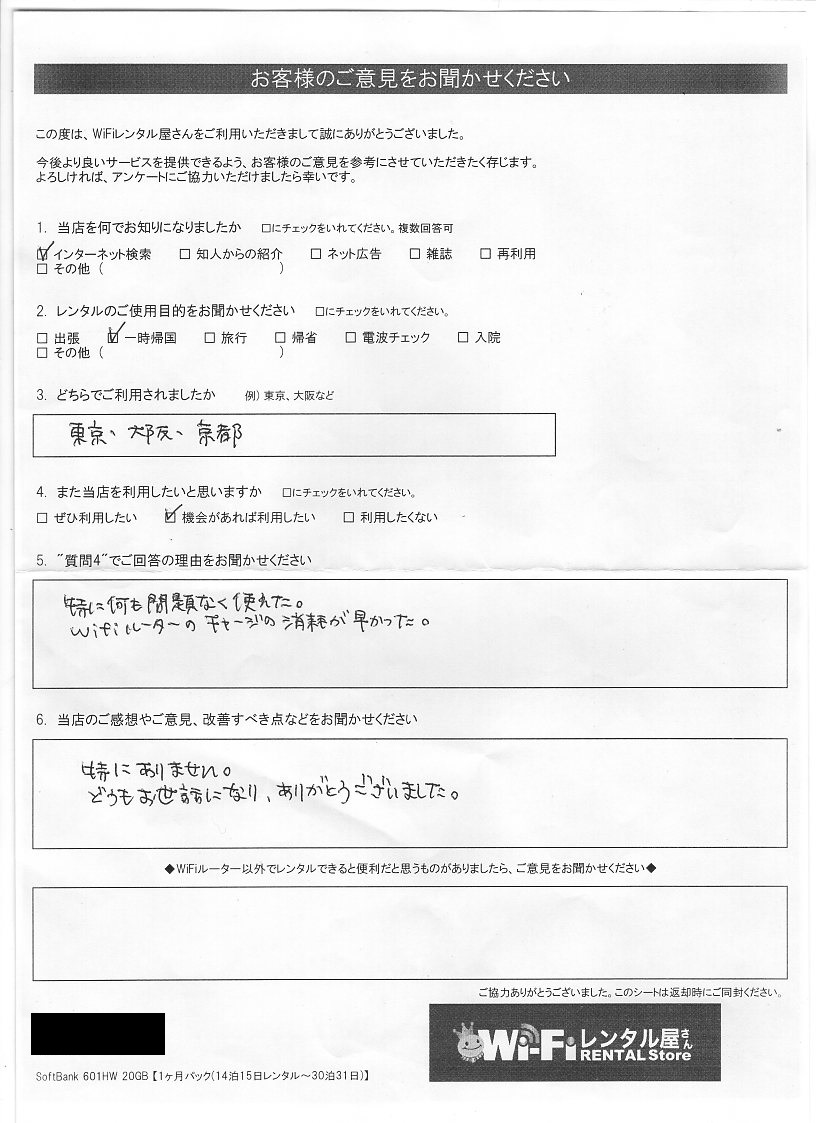 お客様のご意見をお聞かせください
この度は、WiFiレンタル屋さんをご利用いただきまして誠にありがとうございました。
今後より良いサービスを提供できるよう、お客様のご意見を参考にさせていただきたく存じます。
よろしければ、アンケートにご協力いただけましたら幸いです。
1. 当店を何でお知りになりましたか □にチェックをいれてください。複数回答可
☑ インターネット検索 □ 知人からの紹介 □ ネット広告 □ 雑誌 □ 再利用
□ その他 ( )
2. レンタルのご使用目的をお聞かせください □にチェックをいれてください。
□ 出張 ☑ 一時帰国 □ 旅行 □ 帰省 □ 電波チェック □ 入院
□ その他 ( )
3. どちらでご利用されましたか 例) 東京、大阪など
東京、大阪、京都
4. また当店を利用したいと思いますか □にチェックをいれてください。
□ ぜひ利用したい ☑ 機会があれば利用したい □ 利用したくない
5. ″質問4″でご回答の理由をお聞かせください
特に何も問題なく使えた。
Wifiルーターのチャージの消耗が早かった。
6. 当店のご感想やご意見、改善すべき点などをお聞かせください
特にありません。
どうもお世話になり、ありがとうございました。
◆WiFiルーター以外でレンタルできると便利だと思うものがありましたら、ご意見をお聞かせください◆
ご協力ありがとうございました。このシートは返却時にご同封ください。
Wi-Fiレンタル屋さん
RENTAL Store
SoftBank 601HW 20GB【1ヶ月パック(14泊15日レンタル～30泊31日)】